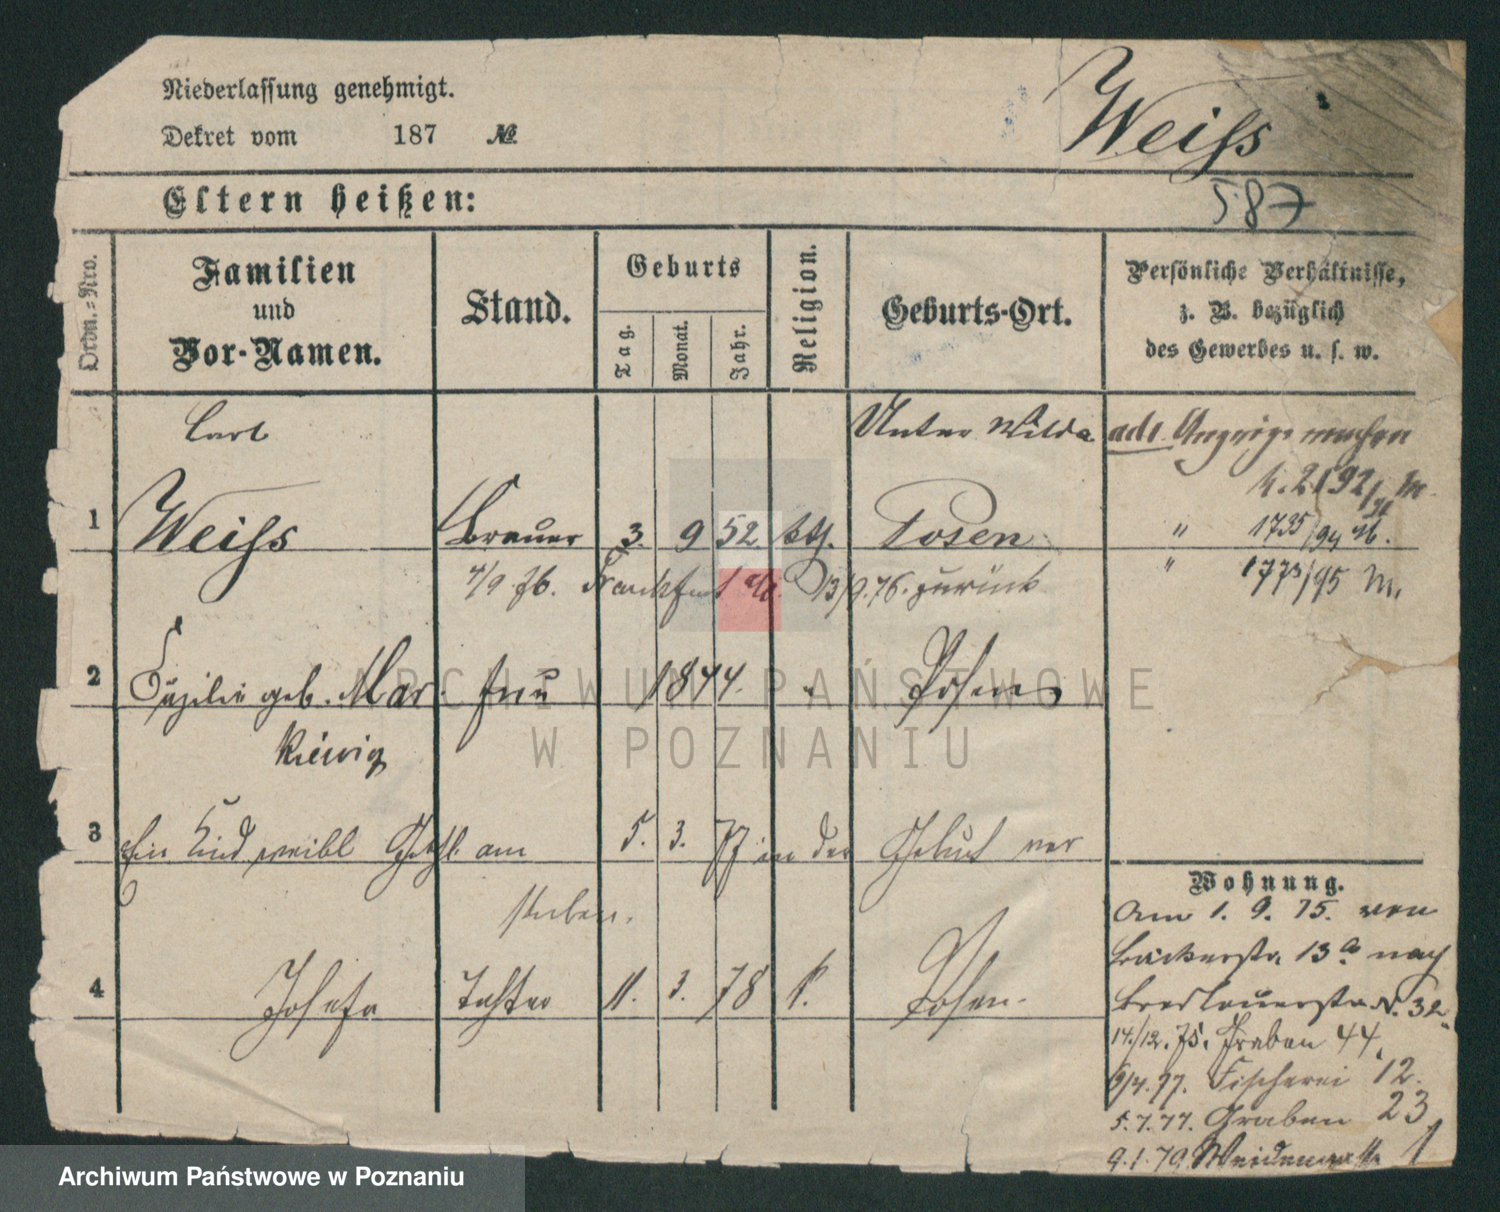 Niederlassung genehmigt.
Dekret vom 187 №
Weiss
587
Eltern heißen:
Ordn.-Nro.
Familien und Vor-Namen.
Stand.
Geburts
Tag.
Monat.
Jahr.
Religion.
Geburts-Ort.
Persönliche Verhältnisse,
z. B. bezüglich
des Gewerbes u. s. w.
Carl
Unter Wilda
Anzeige machen
2192
1 Weiss Brauer 3. 9 52. kth. Posen
" 1735/94
4/9. 76. Frankfurt a/o. 13/9.76. zurück
" 1773/95 M.
2 geb. Mar- Frau 1844. " Posen
kiewicz
ARCHIWUM PAŃSTWOWE
W POZNANIU
3 Ein Kind weibl. Geschl. am 5. 3. 77 in der Geburt ver
storben.
Wohnung.
Am 1. 9. 75. von
Bäckerstr. 13a nach
4 Josefa Tochter 11. 3. 78 k. Posen.
Breslauerstr. N. 32.
14./12. 75. Graben 44.
9/4. 77. Fischerei 12.
5. 7. 77. Graben 23
9. 1. 79 1
Archiwum Państwowe w Poznaniu